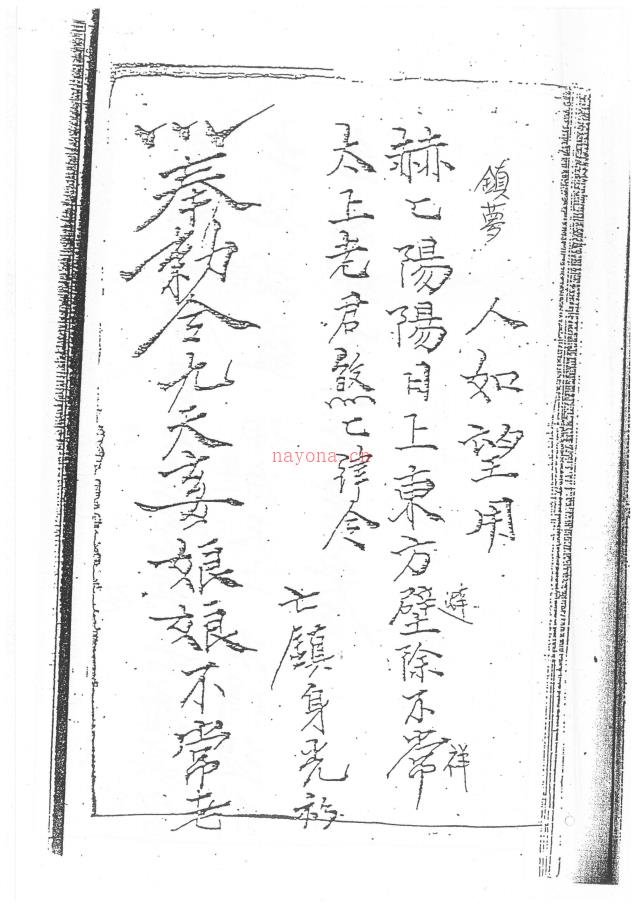 鎮夢
人如望用
赫匕陽陽日上東方壁除不常
避
祥
太上老君煞匕律令
匕鎮身光
奉勅令九天玄娘娘不常老
nayona.cn